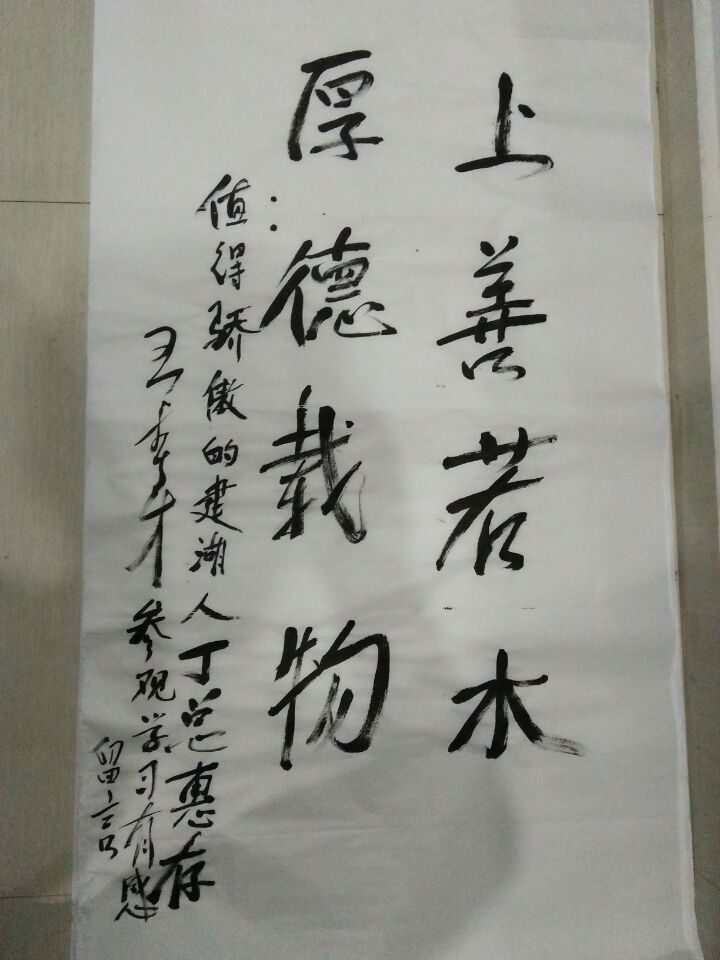 上善若水
厚德载物
：值得骄傲的建湖人丁总惠存
王步才参观学习有感
留言